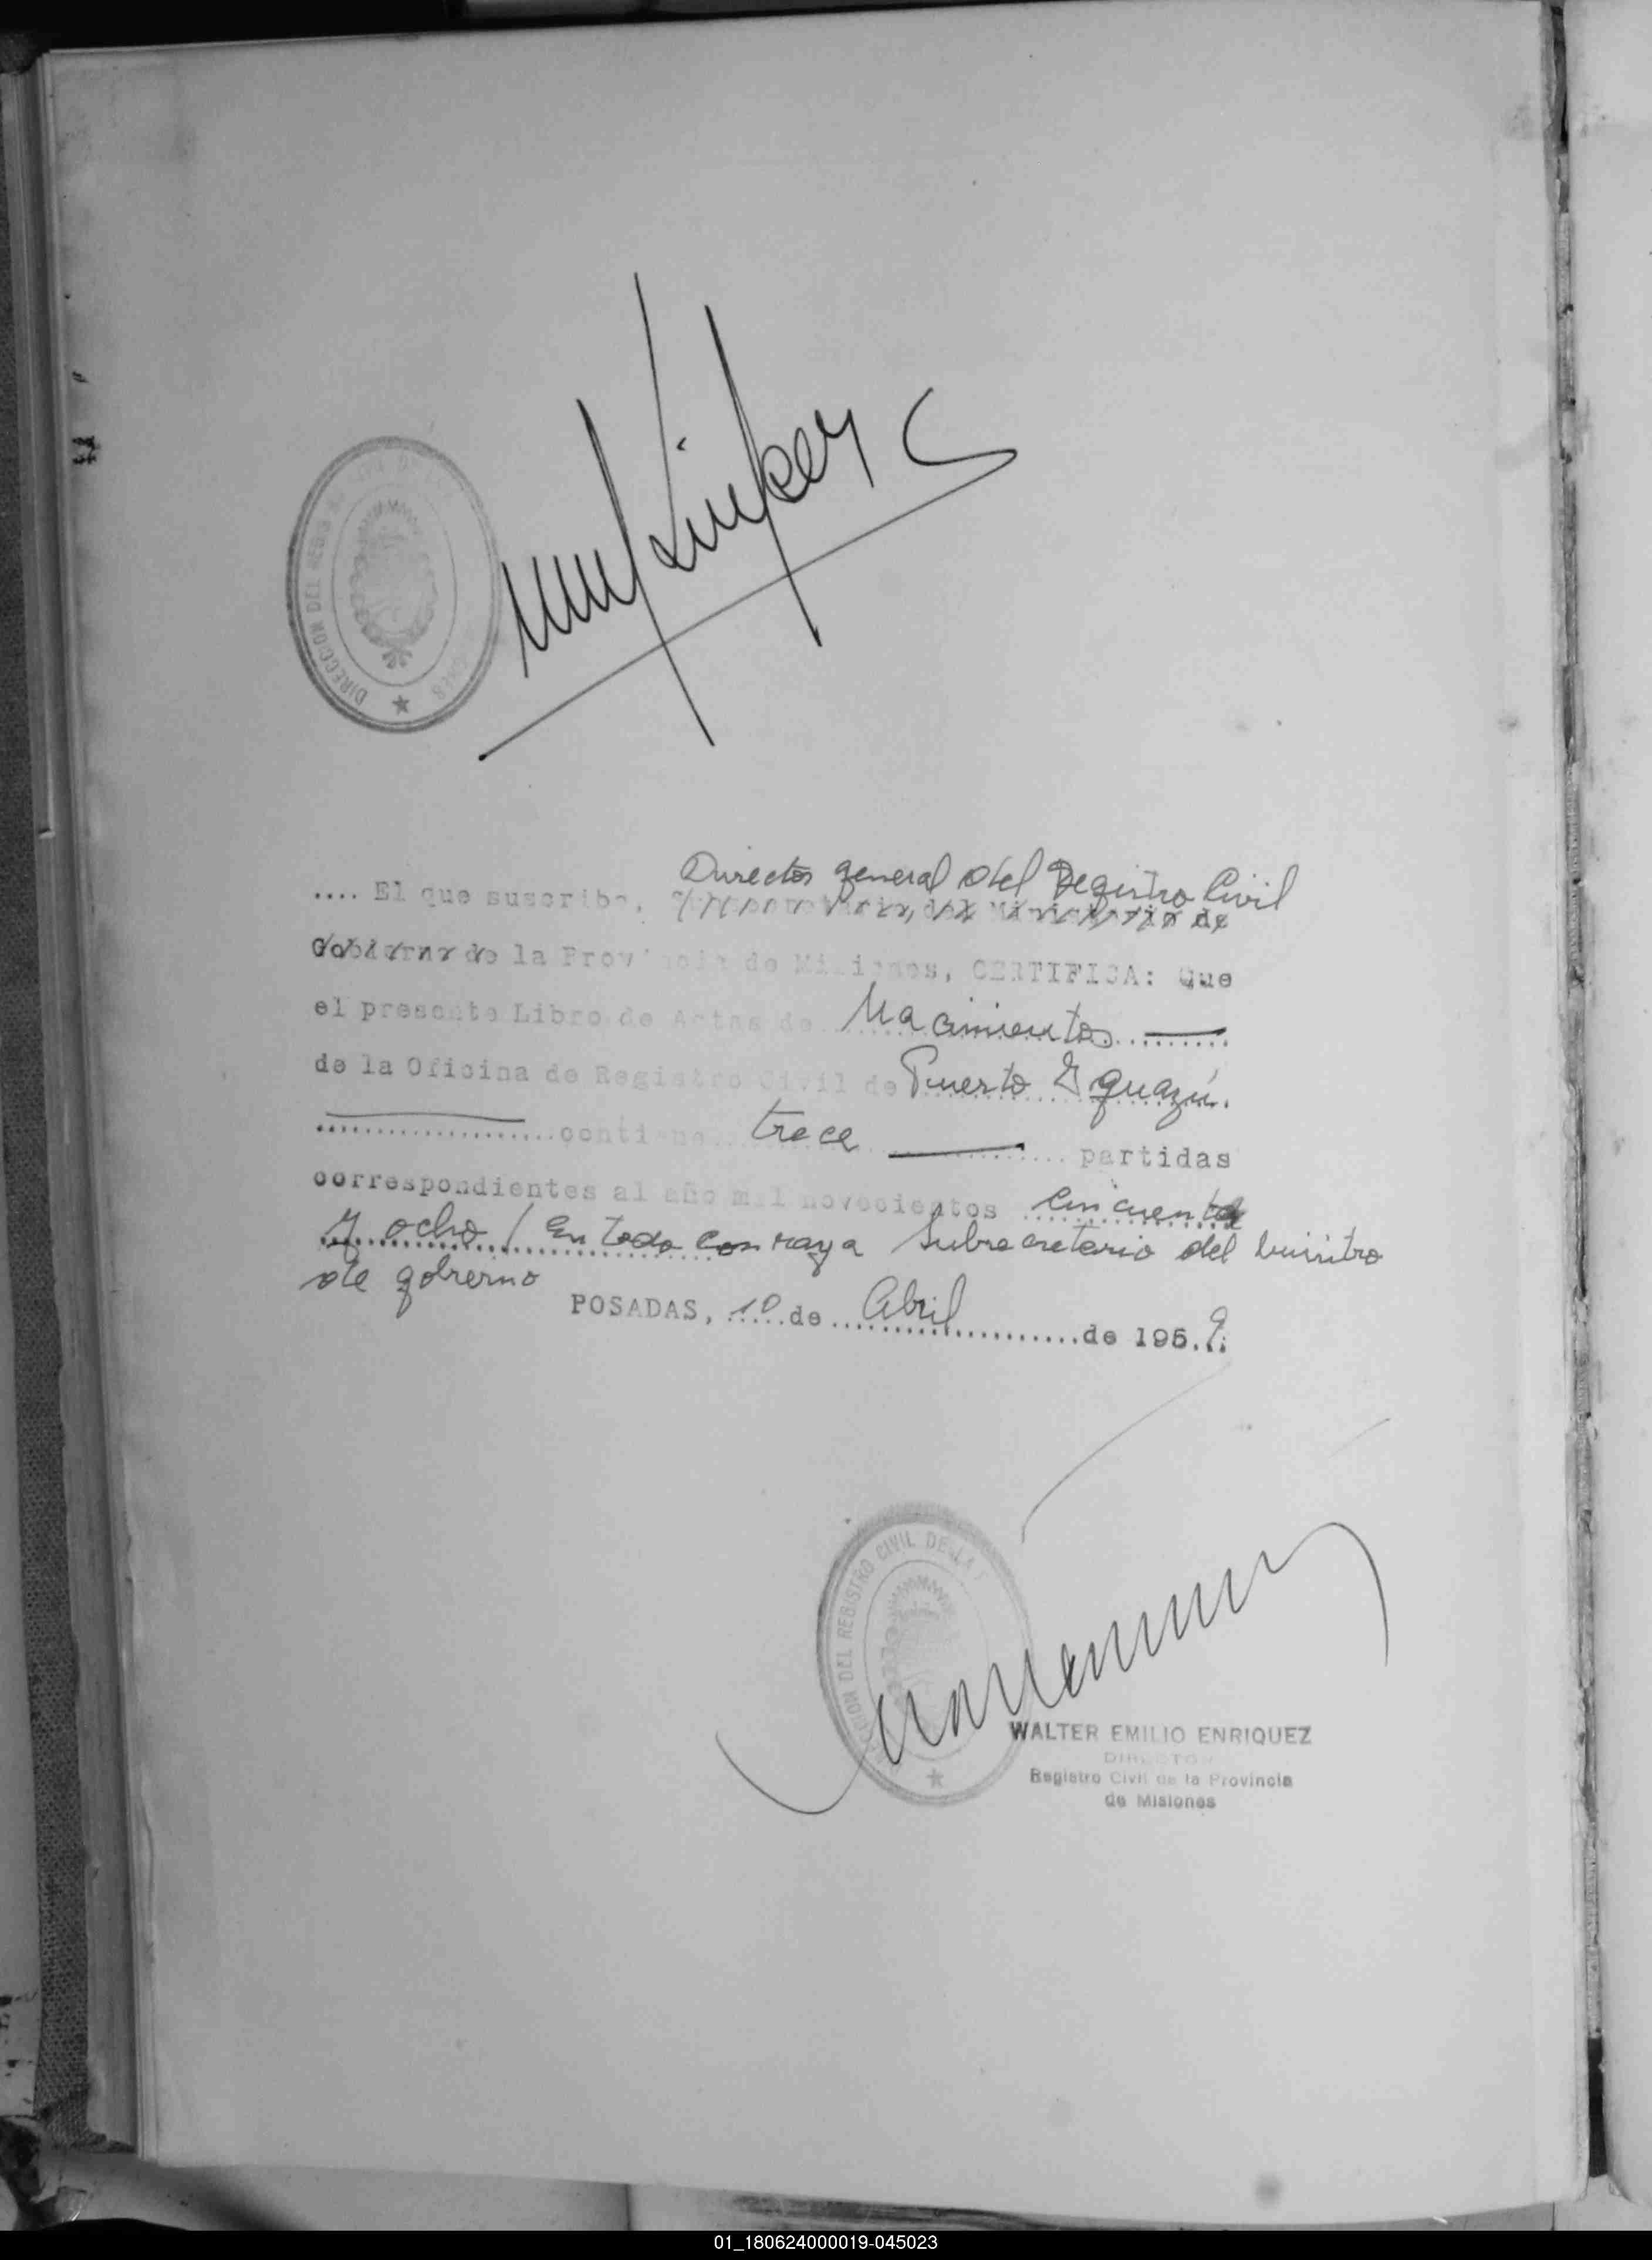 DIRECCION DEL REGIS
.... El que suscribe, Director general del Registro Civil
Subsecretario, del Ministerio de
Gobierno de la Provincia de Misiones, CERTIFICA: Que
el presente Libro de Actas de Nacimientos
de la Oficina de Registro Civil de Puerto Iguazú.
contiene trece partidas
correspondientes al año mil novecientos cincuenta
y ocho / Entodo con raya Subsecretario del Ministro
de gobierno
POSADAS, 10 de Abril de 1959.
CCION DEL REGISTRO CIVIL DE LA
WALTER EMILIO ENRIQUEZ
DIRECTOR
Registro Civil de la Provincia
de Misiones
01_180624000019-045023